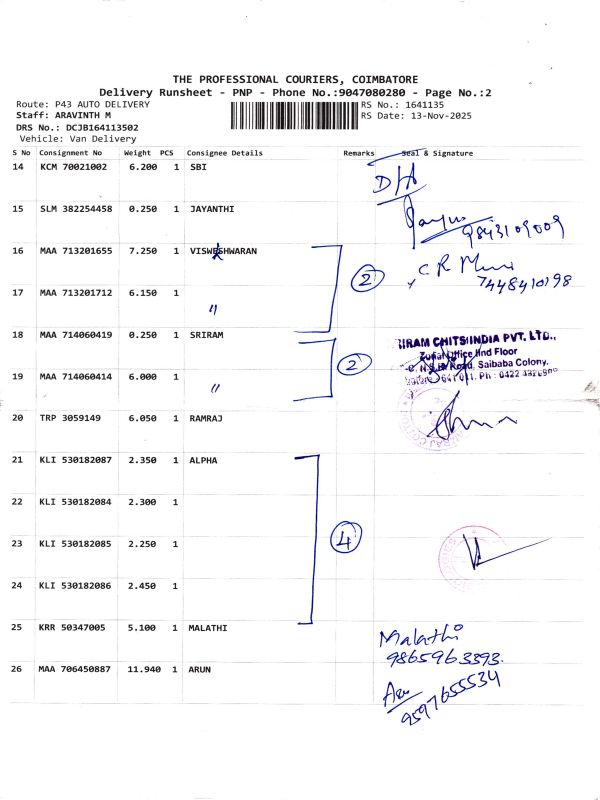 THE PROFESSIONAL COURIERS, COIMBATORE
Delivery Runsheet - PNP - Phone No.:9047080280 - Page No.:2
Route: P43 AUTO DELIVERY
RS No.: 1641135
Staff: ARAVINTH M
RS Date: 13-Nov-2025
DRS No.: DCJB164113502
Vehicle: Van Delivery
S No Consignment No Weight PCS Consignee Details Remarks Seal & Signature
14 KCM 70021002 6.200 1 SBI
D/A
15 SLM 382254458 0.250 1 JAYANTHI
9843109009
16 MAA 713201655 7.250 1 VISWESHWARAN
2
C R
7448410198
17 MAA 713201712 6.150 1 "
18 MAA 714060419 0.250 1 SRIRAM
2
IRAM CHITS INDIA PVT. LTD.,
Zonal Office IInd Floor
N.S.R. Road, Saibaba Colony.
641 011. Ph : 0422
19 MAA 714060414 6.000 1 "
20 TRP 3059149 6.050 1 RAMRAJ
21 KLI 530182087 2.350 1 ALPHA
22 KLI 530182084 2.300 1
23 KLI 530182085 2.250 1
4
24 KLI 530182086 2.450 1
25 KRR 50347005 5.100 1 MALATHI
Malathi
9865963393.
26 MAA 706450887 11.940 1 ARUN
9597655534